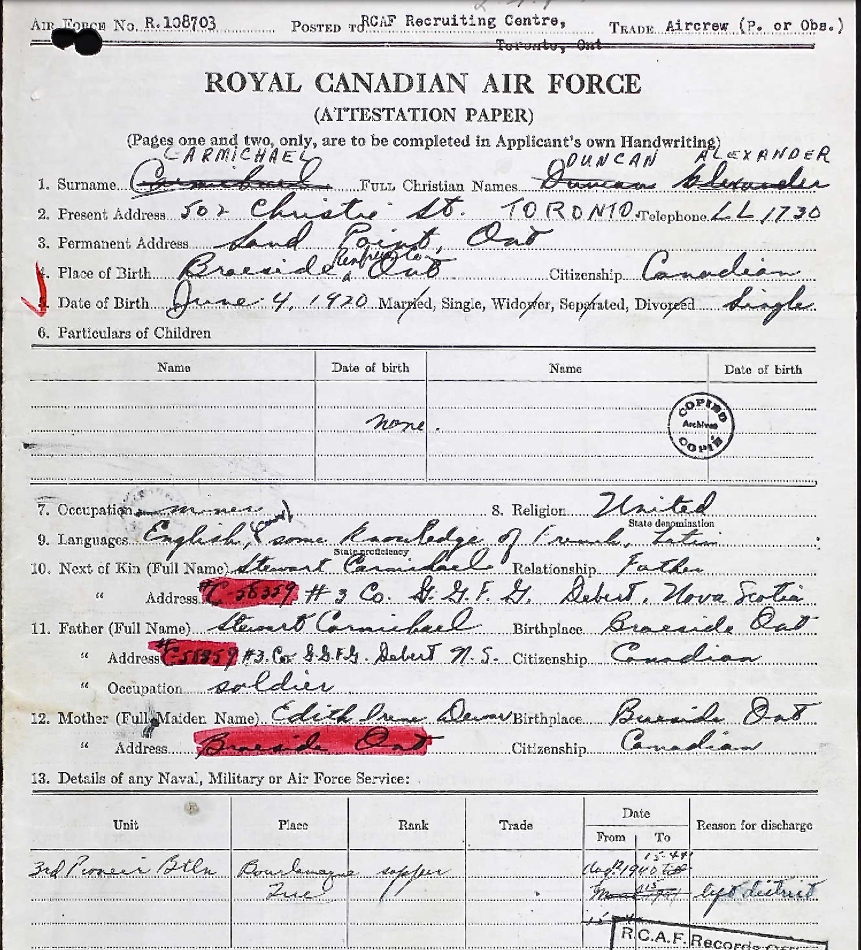 AIR FORCE NO. R.108703 POSTED TO RCAF Recruiting Centre, TRADE Aircrew (P. or Obs.)
Toronto, Ont
ROYAL CANADIAN AIR FORCE
(ATTESTATION PAPER)
(Pages one and two, only, are to be completed in Applicant's own Handwriting)
CARMICHAEL DUNCAN ALEXANDER
1. Surname Carmichael FULL Christian Names Duncan Alexander
2. Present Address 502 Christie St. TORONTO. Telephone LL 1730
3. Permanent Address Sand Point, Ont
4. Place of Birth Braeside, Renfrew Co Ont Citizenship Canadian
5. Date of Birth June 4, 1920 Married, Single, Widower, Separated, Divorced Single
6. Particulars of Children
Name Date of birth Name Date of birth
none.
COPIED Archives COPIÉ
7. Occupation miner 8. Religion United
State denomination
9. Languages English, & some knowledge of French, Latin
State proficiency
10. Next of Kin (Full Name) Stewart Carmichael Relationship Father
" Address #C-58359 #3 Co. G.G.F.G. Debert, Nova Scotia
11. Father (Full Name) Stewart Carmichael Birthplace Braeside Ont
" Address #C-58359 #3. Co. G.G.F.G. Debert N.S. Citizenship Canadian
" Occupation soldier
12. Mother (Full Maiden Name) Edith Irene Birthplace Braeside Ont
" Address Braeside Ont Citizenship Canadian
13. Details of any Naval, Military or Air Force Service:
Unit Place Rank Trade Date From To Reason for discharge
3rd Pioneer Btln Bourlamaque sapper 1940
left district
R.C.A.F. Records